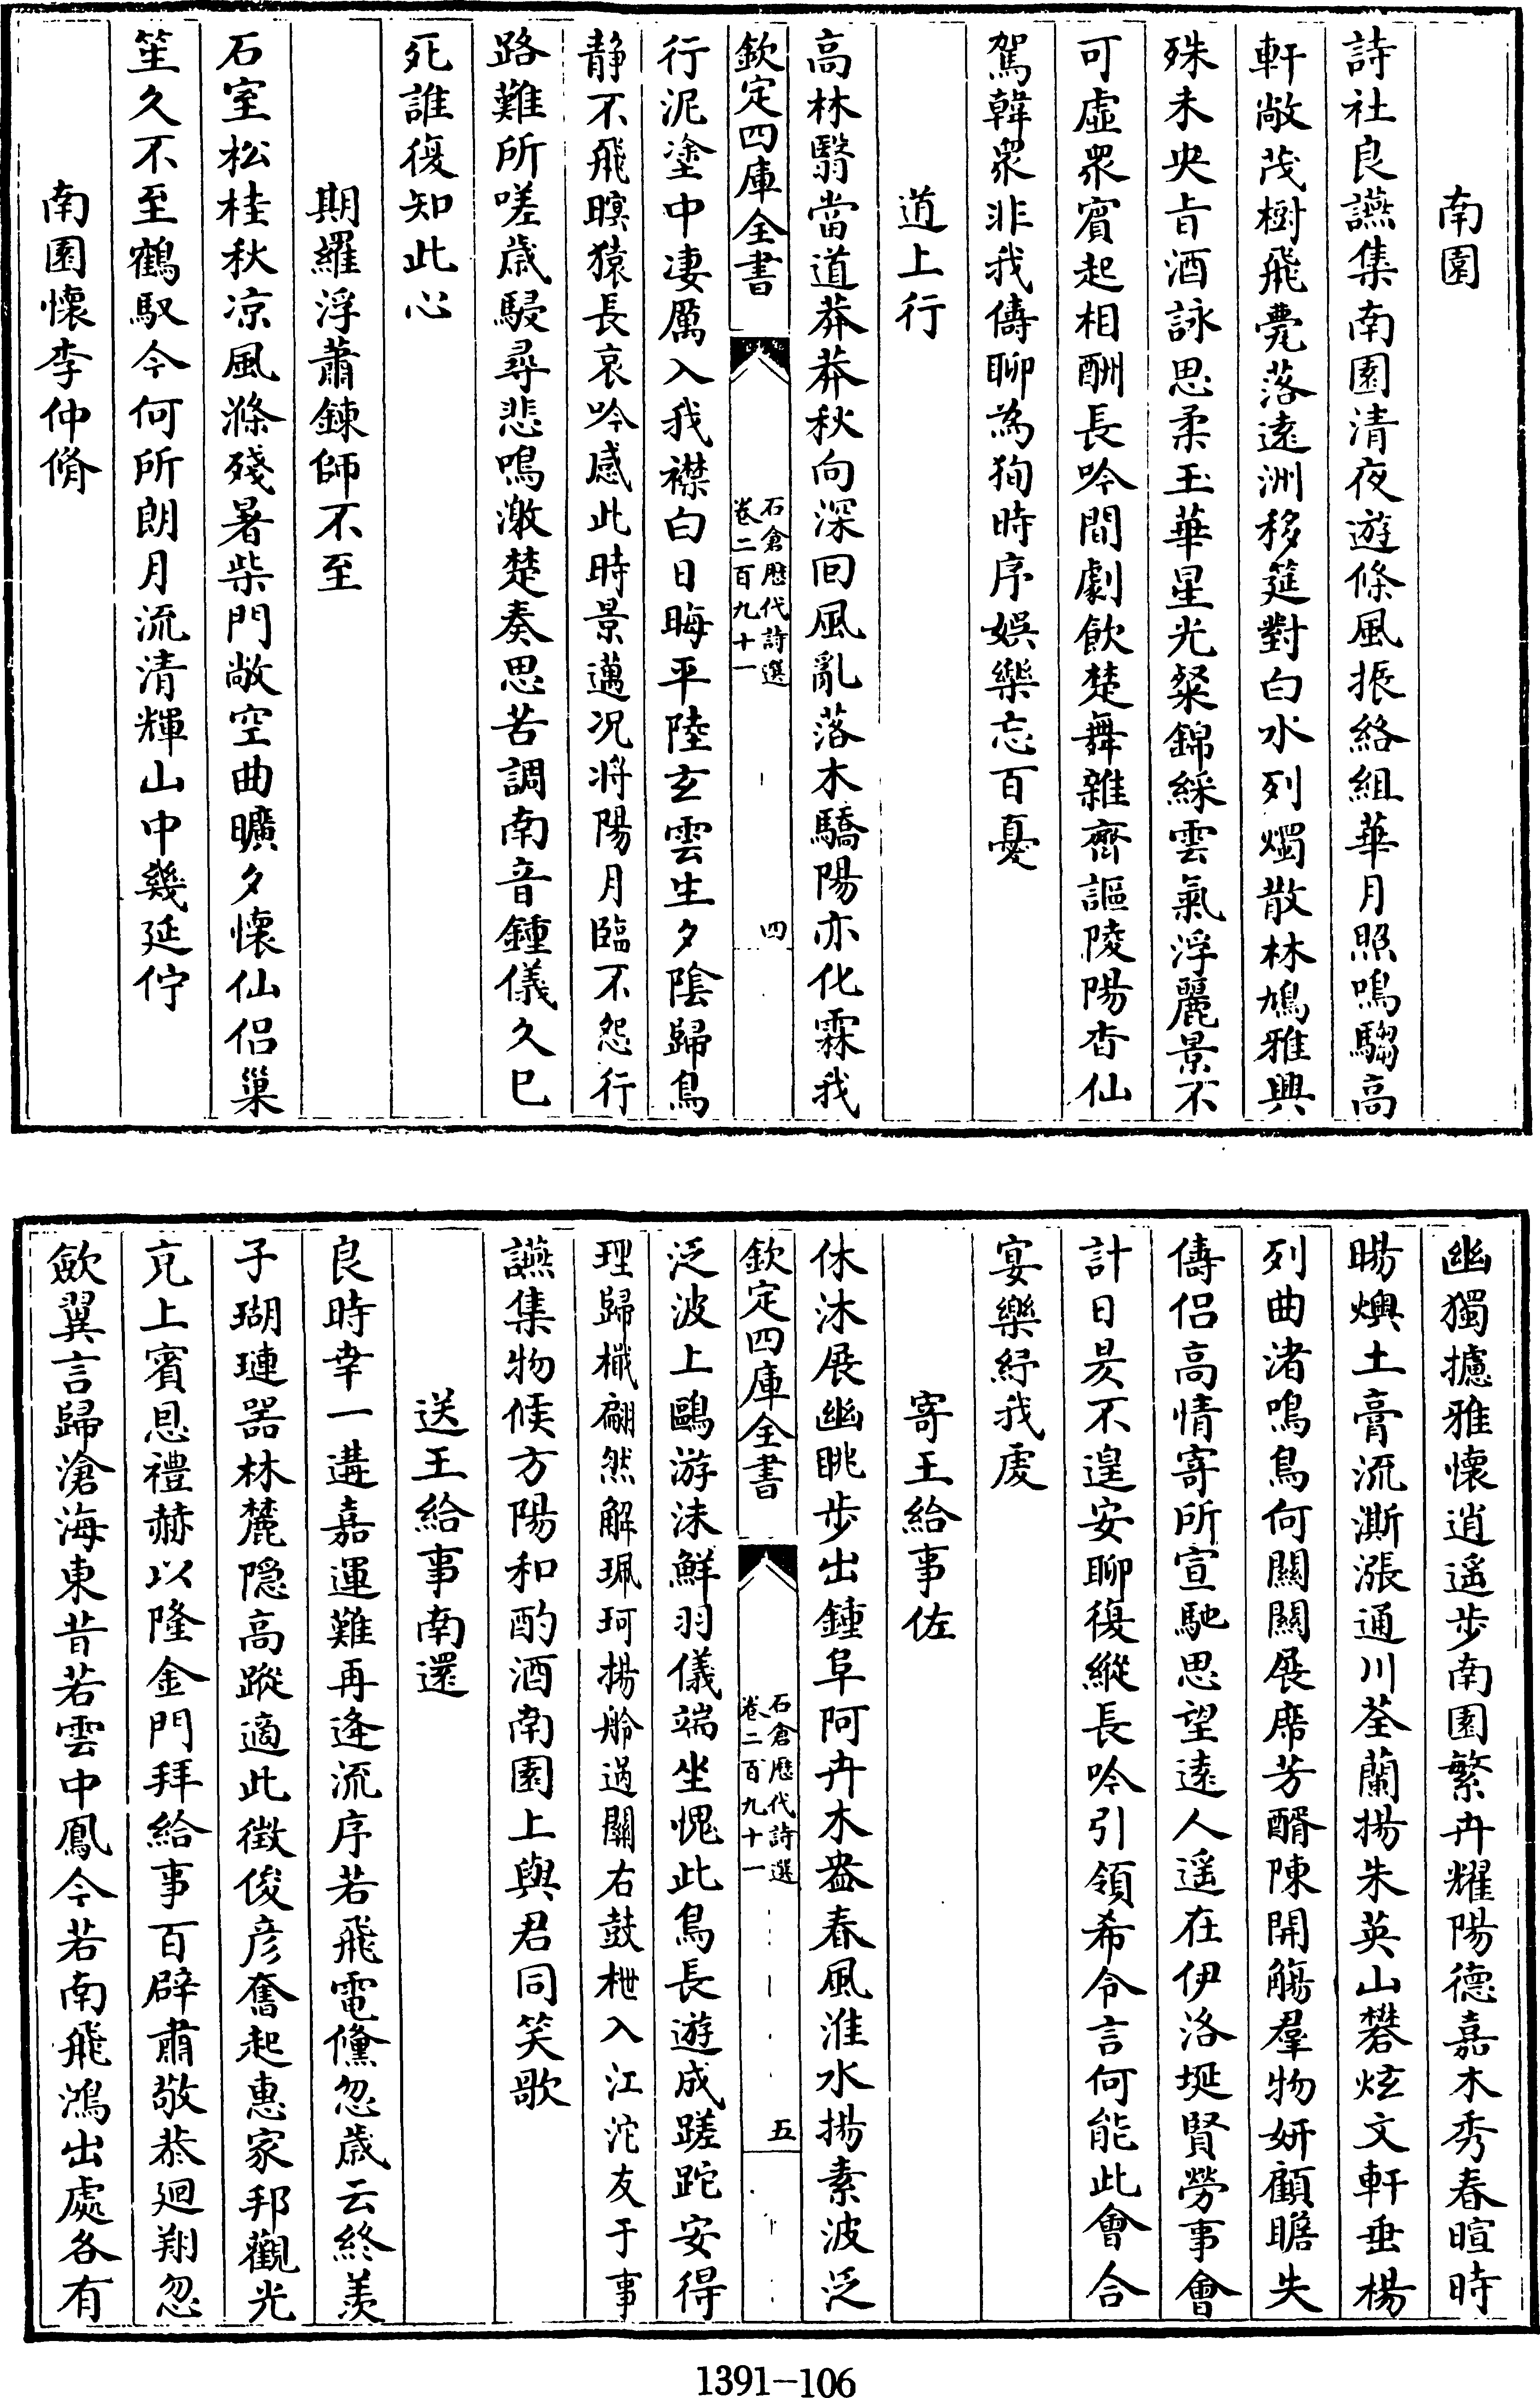 南園
詩社良讌集南園清夜遊條風振絡組華月照鳴騶高
軒敞茂樹飛甍落遠洲移筵對白水列燭散林鳩雅興
殊未央旨酒詠思柔玉華星光粲錦綵雲氣浮麗景不
可虛衆賓起相酬長吟間劇飲楚舞雜齊謳陵陽杳仙
駕韓衆非我儔聊為狥時序娛樂忘百憂
道上行
高林翳當道莽莽秋向深回風亂落木驕陽亦化霖我
欽定四庫全書
石倉歷代詩選
卷二百九十一
四
行泥塗中凄厲入我襟白日晦平陸玄雲生夕陰歸鳥
静不飛暝猿長哀吟感此時景邁况將陽月臨不怨行
路難所嗟歲駸尋悲鳴激楚奏思苦調南音鍾儀久已
死誰復知此心
期羅浮蕭鍊師不至
石室松桂秋凉風滌殘暑柴門敞空曲曠夕懷仙侣巢
笙久不至鶴馭今何所朗月流清輝山中幾延佇
南園懷李仲脩
幽獨攄雅懷逍遥步南園繁卉耀陽德嘉木秀春暄時
暘燠土膏流澌漲通川荃蘭揚朱英山礬炫文軒垂楊
列曲渚鳴鳥何關關展席芳醑陳開觴羣物妍顧瞻失
儔侣高情寄所宣馳思望遠人遥在伊洛埏賢勞事會
計日昃不遑安聊復縱長吟引領希令言何能此會合
宴樂紓我虔
寄王給事佐
休沐展幽眺步出鍾阜阿卉木盎春風淮水揚素波泛
欽定四庫全書
石倉歷代詩選
卷二百九十一
五
泛波上鷗游沬鮮羽儀端坐愧此鳥長遊成蹉跎安得
理歸檝翩然解珮珂揚舲過關右鼓枻入江沱友于事
讌集物候方陽和酌酒南園上與君同笑歌
送王給事南還
良時幸一遘嘉運難再逢流序若飛電儵忽歲云終羨
子瑚璉器林麓隠高蹤適此徴俊彦奮起惠家邦觀光
充上賓恩禮赫以隆金門拜給事百辟肅敬恭廻翔忽
歛翼言歸滄海東昔若雲中鳳今若南飛鴻出處各有
1391—106